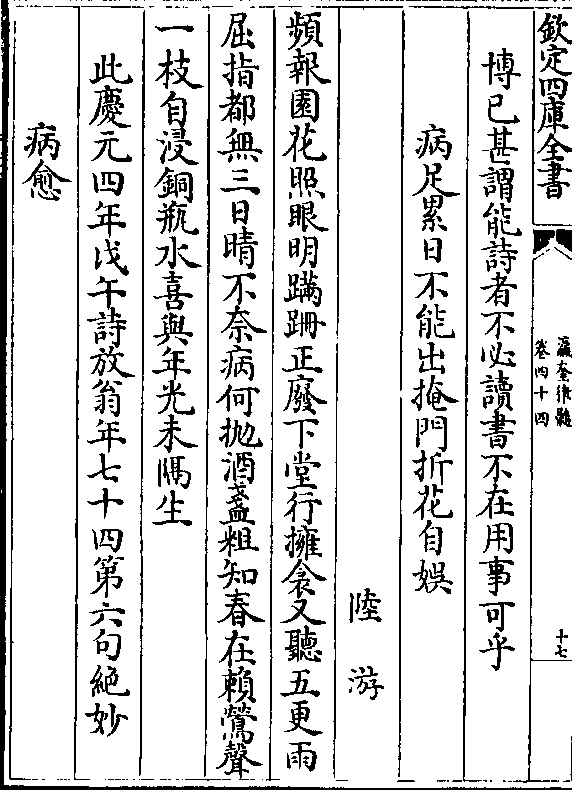 欽定四庫全書
瀛奎律髓
卷四十四
十七
博已甚謂能詩者不必讀書不在用事可乎
病足累日不能出掩門折花自娛
陸游
頻報園花照眼明蹣跚正廢下堂行擁衾又聽五更雨
屈指都無三日晴不奈病何抛酒盞粗知春在賴鶯聲
一枝自浸銅瓶水喜與年光未隔生
此慶元四年戊午詩放翁年七十四第六句絶妙
病愈